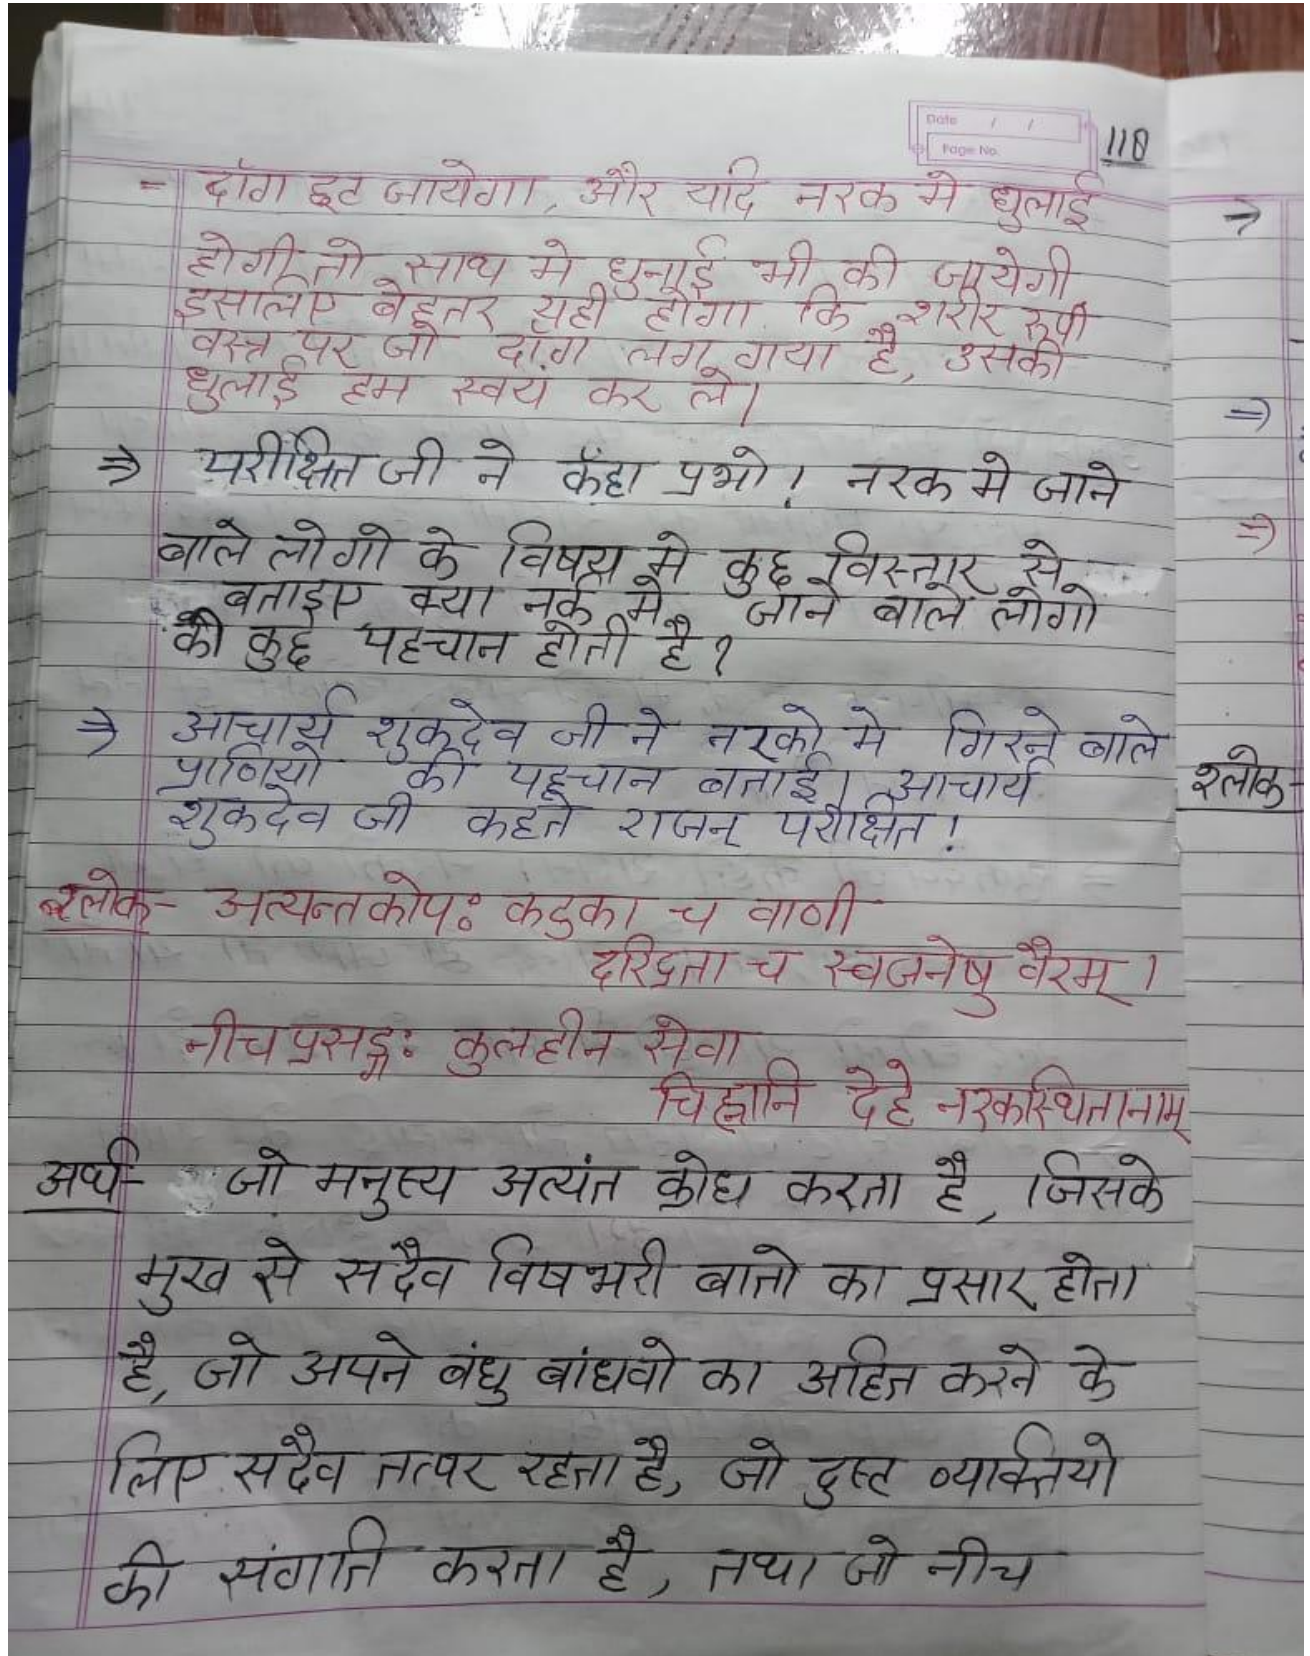 Date / /
Page No.
118
- दॉग हट जायेगा, और यदि नरक मे धुलाई
होगी तो साथ मे धुनाई भी की जायेगी
इसलिए बेहतर यही होगा कि शरीर रूपी
वस्त्र पर जो दॉग लग गया है, उसकी
धुलाई हम स्वयं कर ले।
⇒ परीक्षित जी ने कहा प्रभो! नरक मे जाने
बाले लोगो के विषय मे कुछ विस्तार से
बताइए क्या नर्क मे जाने बाले लोगो
की कुछ पहचान होती है?
⇒ आचार्य शुकदेव जी ने नरको मे गिरने बाले
प्राणियो की पहचान बताई। आचार्य
शुकदेव जी कहते राजन् परीक्षित!
श्लोक- अत्यन्तकोपः कटुका च वाणी
दरिद्रता च स्वजनेषु वैरम्।
नीचप्रसङ्गः कुलहीन सेवा
चिह्नानि देहे नरकस्थितानाम्
अर्थ- जो मनुस्य अत्यंत क्रोध करता है, जिसके
मुख से सदैव विषभरी बातो का प्रसार होता
है, जो अपने बंधु बांधवो का अहित करने के
लिए सदैव तत्पर रहता है, जो दुस्ट व्यक्तियो
की संगति करता है, तथा जो नीच
→
⇒
⇒
श्लोक-